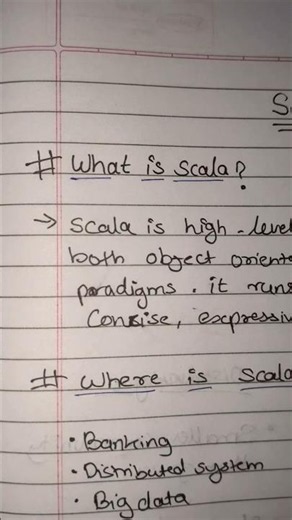 # What is Scala?
→ Scala is high-level
both object oriente
paradigms. it runs
Concise, expressiv
# Where is Scala
• Banking
• Distributed system
• Big data